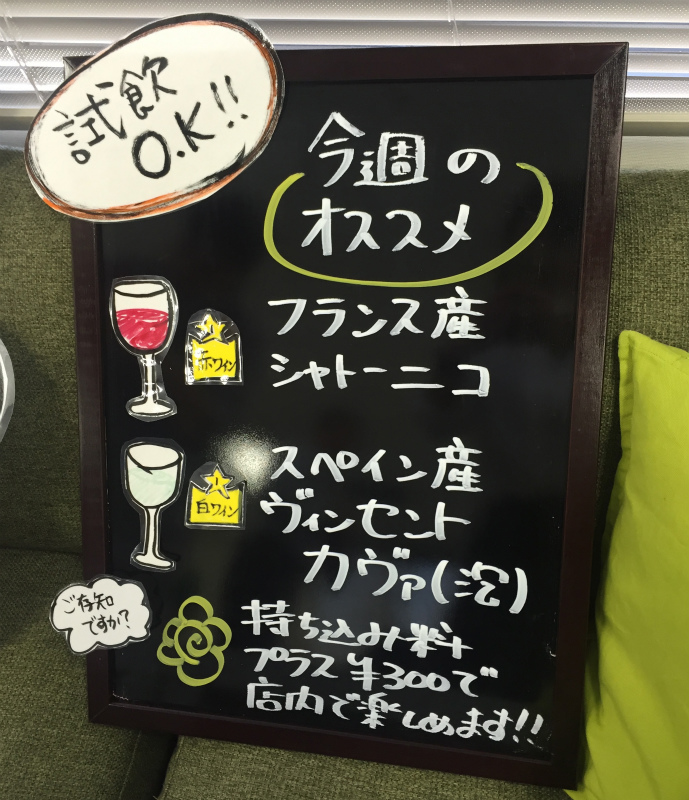 試飲
O.K!!
今週の
オススメ
赤ワイン
フランス産
シャトーニコ
白ワイン
スペイン産
ヴィンセント
カヴァ(泡)
ご存知
ですか?
持ち込み料
プラス¥300で
店内で楽しめます!!